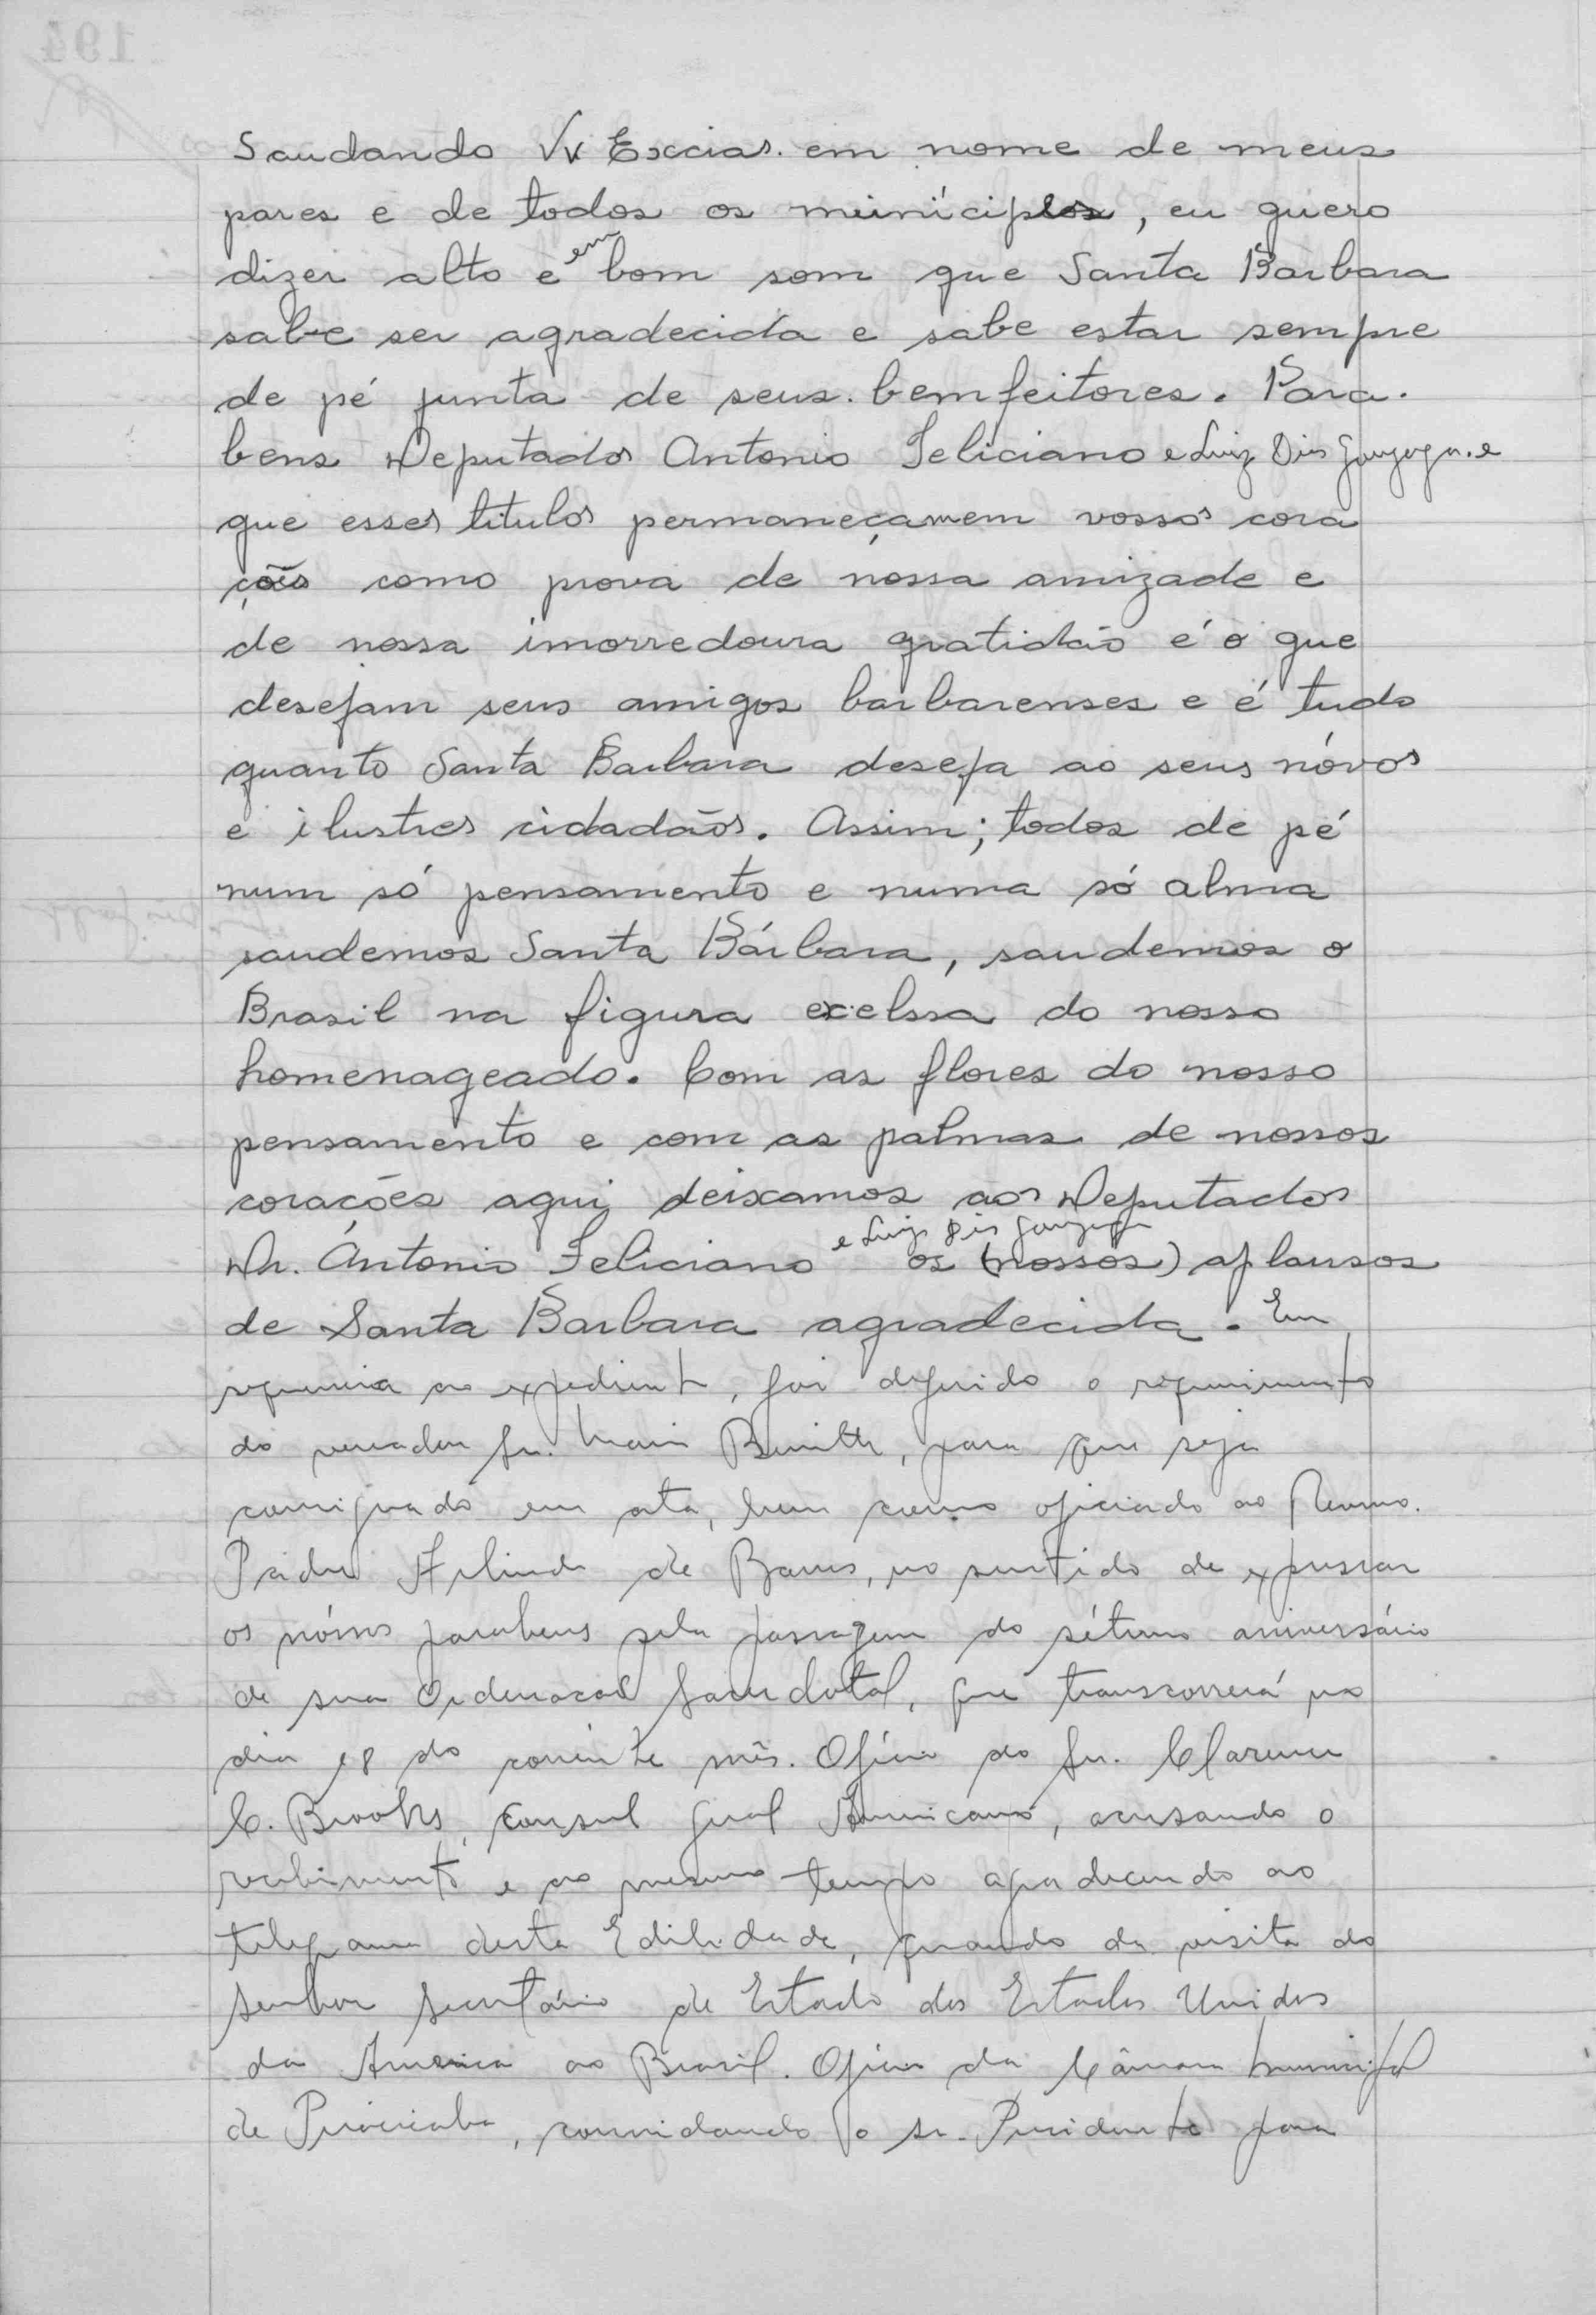 Saudando Vv Exccias. em nome de meus
pares e de todos os munícipes, eu quero
dizer alto e em bom som que Santa Barbara
sabe ser agradecida e sabe estar sempre
de pé junta de seus. bemfeitores. Para.
bens Deputados Antonio Feliciano e Luiz Dis Gonzaga. e
que esses titulos permaneçamem vossos cora
ções como prova de nossa amizade e
de nossa imorredoura gratidão é o que
desejam seus amigos barbarenses e é tudo
quanto Santa Barbara deseja ao seus nóvos
e ilustres cidadãos. Assim; todos de pé
num só pensamento e numa só alma
saudemos Santa Bárbara, saudemos o
Brasil na figura excelssa do nosso
homenageado. Com as flores do nosso
pensamento e com as palmas de nossos
corações aqui deixamos aos Deputados
Dr. Antonio Feliciano e Luiz Dis Gonzaga os (nossos) aplausos
de Santa Barbara agradecida. Em
sequencia ao expediente, foi deferido o requerimento
do vereador Sr. para que seja
consignado em ata, bem como oficiado ao Revmo.
Padre Arlindo de, no sentido de expressar
os nóssos parabens pela passagem do sétimo aniversário
de sua Ordenacão Sacerdotal, que transcorrerá no
dia 18 do corrente mês. Ofício do Sr. Clarence
C. Brooks, Consul geral Americano, acusando o
recebimento e ao mesmo tempo agradecendo ao
telegrama desta Edilidade, quando da visita do
Senhor Secretário de Estado dos Estados Unidos
da America ao Brasil. Ofício da Câmara Municipal
de Piracicaba, convidando o sr. Presidente para
194